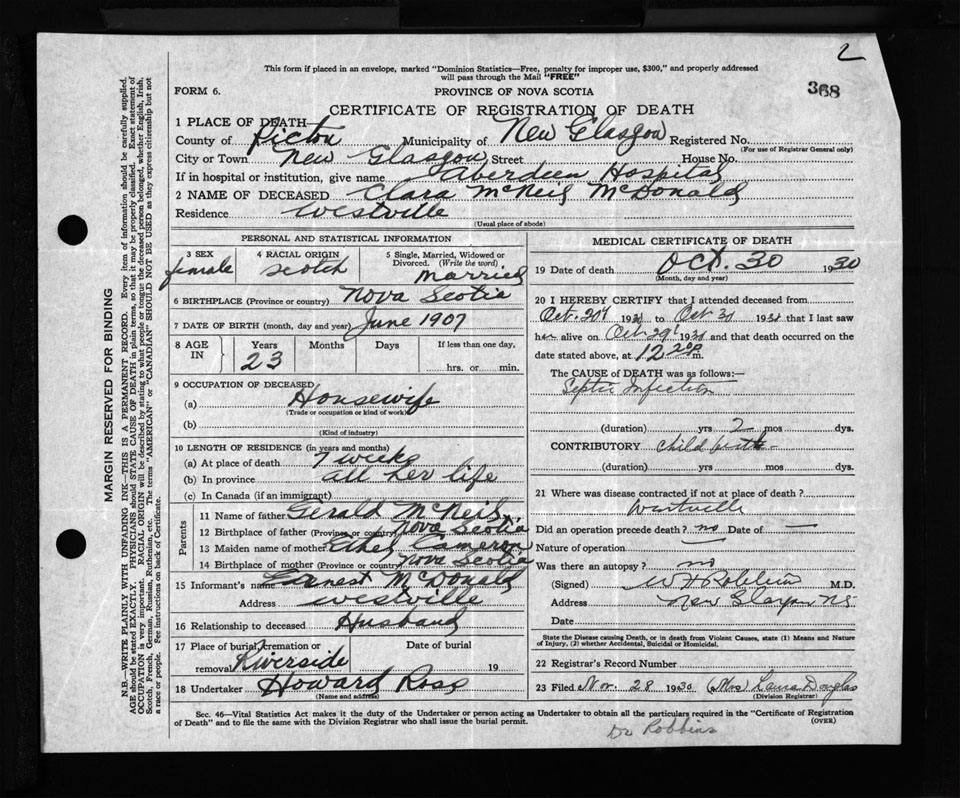 2
This form if placed in an envelope, marked "Dominion Statistics—Free, penalty for improper use, $300," and properly addressed
will pass through the Mail "FREE"
368
FORM 6.
PROVINCE OF NOVA SCOTIA
CERTIFICATE OF REGISTRATION OF DEATH
1 PLACE OF DEATH
County of Pictou Municipality of New Glasgow Registered No.
(For use of Registrar General only)
City or Town New Glasgow Street House No.
If in hospital or institution, give name Aberdeen Hospital
2 NAME OF DECEASED Clara McNeil McDonald
Residence Westville
(Usual place of abode)
PERSONAL AND STATISTICAL INFORMATION
3 SEX female
4 RACIAL ORIGIN Scotch
5 Single, Married, Widowed or
Divorced. (Write the word) Married
6 BIRTHPLACE (Province or country) Nova Scotia
7 DATE OF BIRTH (month, day and year) June 1907
8 AGE IN Years Months Days If less than one day,
23 hrs. or min.
9 OCCUPATION OF DECEASED
(a) Housewife
(Trade or occupation or kind of work)
(b)
(Kind of industry)
10 LENGTH OF RESIDENCE (in years and months)
(a) At place of death 7 weeks
(b) In province all her life
(c) In Canada (if an immigrant)
Parents
11 Name of father Gerald McNeil
12 Birthplace of father (Province or country) Nova Scotia
13 Maiden name of mother Ethel Cameron
14 Birthplace of mother (Province or country) Nova Scotia
15 Informant's name Earnest McDonald
Address Westville
16 Relationship to deceased Husband
17 Place of burial, cremation or Date of burial
removal Riverside 19
18 Undertaker Howard Ross
(Name and address)
MEDICAL CERTIFICATE OF DEATH
19 Date of death Oct. 30 1930
(Month, day and year)
20 I HEREBY CERTIFY that I attended deceased from
Oct. 20 1930 to Oct 30 1930 that I last saw
her alive on Oct 29 1930 and that death occurred on the
date stated above, at 12 m.
The CAUSE of DEATH was as follows:—
Septic Infection
(duration) yrs 2 mos dys.
CONTRIBUTORY Child birth
(duration) yrs mos dys.
21 Where was disease contracted if not at place of death?
Westville
Did an operation precede death? no Date of —
Nature of operation —
Was there an autopsy? no
(Signed) W H Robbins M.D.
Address New Glasgow N.S.
Date
State the Disease causing Death, or in death from Violent Causes, state (1) Means and Nature
of Injury, (2) whether Accidental, Suicidal or Homicidal.
22 Registrar's Record Number
23 Filed Nov. 28 1930 (Mrs) Lana Douglas
(Division Registrar)
Sec. 46—Vital Statistics Act makes it the duty of the Undertaker or person acting as Undertaker to obtain all the particulars required in the "Certificate of Registration
of Death" and to file the same with the Division Registrar who shall issue the burial permit. (OVER)
Dr Robbins
MARGIN RESERVED FOR BINDING
N.B.—WRITE PLAINLY WITH UNFADING INK—THIS IS A PERMANENT RECORD. Every item of information should be carefully supplied.
AGE should be stated EXACTLY. PHYSICIANS should STATE CAUSE OF DEATH in plain terms, so that it may be properly classified. Exact statement of
OCCUPATION is very important. RACIAL ORIGIN will be described by stating to what people or tongue the deceased person belonged, whether English, Irish,
Scotch, French, German, Russian, Ruthenian, etc. The terms "AMERICAN" or "CANADIAN" SHOULD NOT BE USED as they express citizenship but not
a race or people. See instructions on back of Certificate.